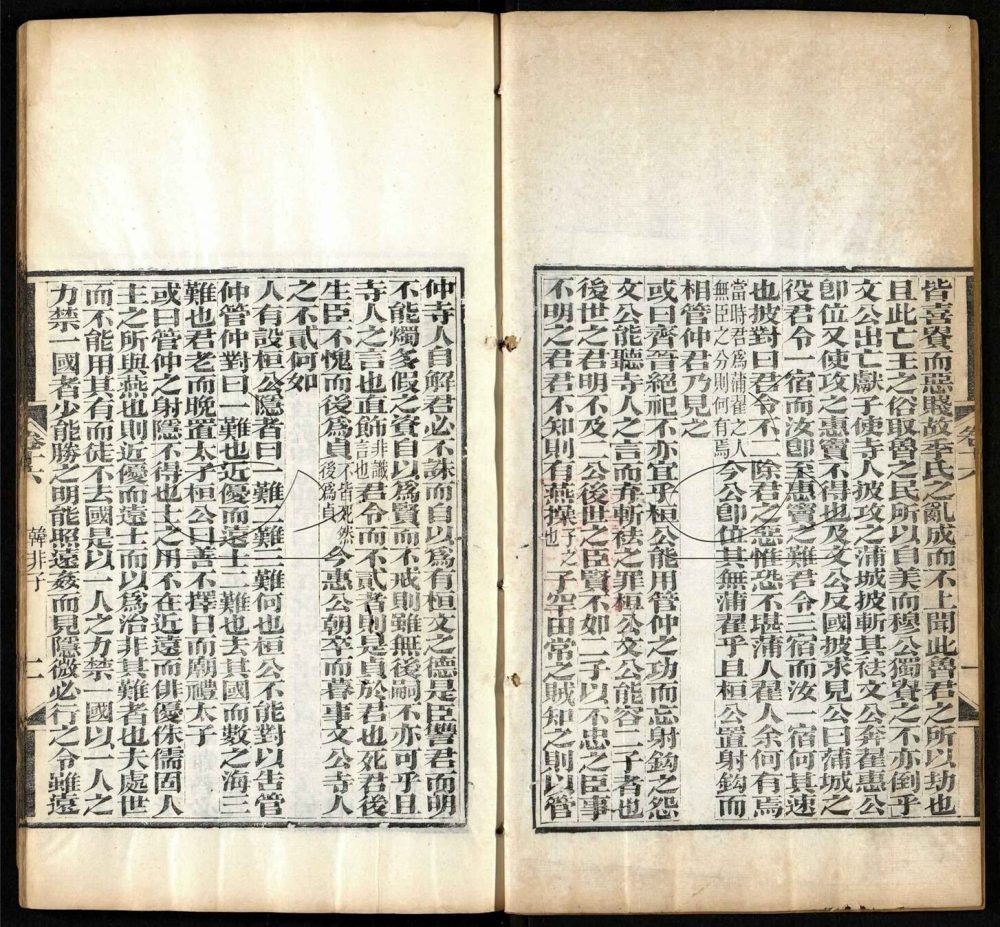 皆喜貴而惡賤故季氏之亂成而不上聞此魯君之所以劫也
且此亡王之俗取魯之民所以自美而穆公獨貴之不亦倒乎
文公出亡獻子使寺人披攻之蒲城披斬其袪文公奔翟惠公
卽位又使攻之惠竇不得也及文公反國披求見公曰蒲城之
役君令一宿而汝卽至惠竇之難君令三宿而汝一宿何其速
也披對曰君令不二除君之惡惟恐不堪蒲人翟人余何有焉
當時君爲蒲翟之人無臣之分則何有焉今公卽位其無蒲翟乎且桓公置射鈎而
相管仲君乃見之
或曰齊晉絕祀不亦宜乎桓公能用管仲之功而忘射鈎之怨
文公能聽寺人之言而弃斬袪之罪桓公文公能容二子者也
後世之君明不及二公後世之臣賢不如二子以不忠之臣事
不明之君君不知則有燕操子之也子罕田常之賊知之則以管
仲寺人自解君必不誅而自以爲有桓文之德是臣讐君而明
不能燭多假之資自以爲賢而不戒則雖無後嗣不亦可乎且
寺人之言也直飾非識言也君令而不貳者則是貞於君也死君後
生臣不愧而後爲貞不皆死然後爲貞今惠公朝卒而暮事文公寺人
之不貳何如
人有設桓公隱者曰一難二難三難何也桓公不能對以告管
仲管仲對曰一難也近優而遠士二難也去其國而數之海三
難也君老而晚置太子桓公曰善不擇日而廟禮太子
或曰管仲之射隱不得也士之用不在近遠而俳優侏儒固人
主之所與燕也則近優而遠士而以爲治非其難者也夫處世
而不能用其有而徒不去國是以一人之力禁一國以一人之
力禁一國者少能勝之明能照遠姦而見隱微必行之令雖遠
韓非子